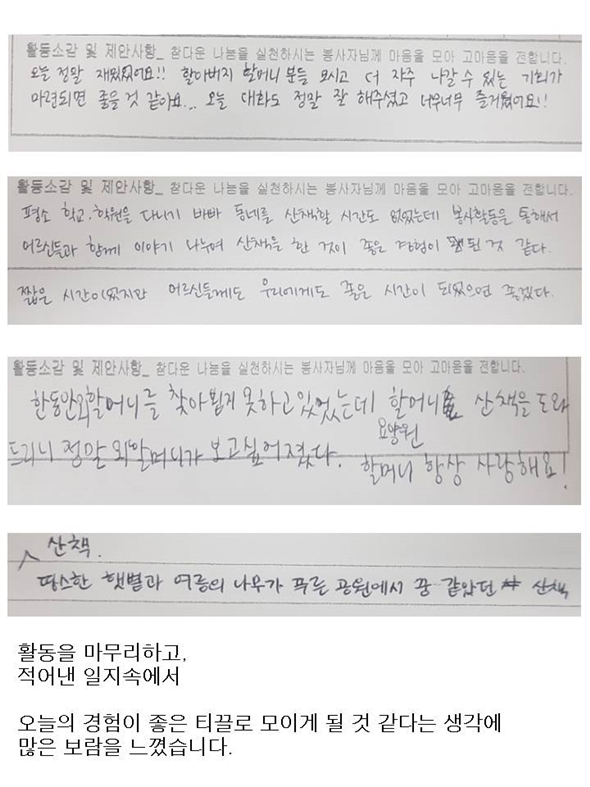 활동소감 및 제안사항_ 참다운 나눔을 실천하시는 봉사자님께 마음을 모아 고마움을 전합니다.
오늘 정말 재밌었어요!! 할아버지 할머니 분들 모시고 더 자주 나갈 수 있는 기회가
마련되면 좋을 것 같아요... 오늘 대화도 정말 잘 해주셨고 너무너무 즐거웠어요!!
활동소감 및 제안사항_ 참다운 나눔을 실천하시는 봉사자님께 마음을 모아 고마움을 전합니다.
평소 학교·학원을 다니기 바빠 동네를 산책할 시간도 없었는데 봉사활동을 통해서
어르신들과 함께 이야기 나누며 산책을 한 것이 좋은 경험이 된 것 같다.
짧은 시간이었지만 어르신들께도 우리에게도 좋은 시간이 되었으면 좋겠다.
활동소감 및 제안사항_ 참다운 나눔을 실천하시는 봉사자님께 마음을 모아 고마움을 전합니다.
한동안 외할머니를 찾아뵙지 못하고 있었는데 요양원 할머니 산책을 도와
드리니 정말 외할머니가 보고싶어졌다. 할머니 항상 사랑해요!
산책.
따스한 햇볕과 여름의 나무가 푸른 공원에서 꿈 같았던 산책
활동을 마무리하고,
적어낸 일지속에서
오늘의 경험이 좋은 티끌로 모이게 될 것 같다는 생각에
많은 보람을 느꼈습니다.